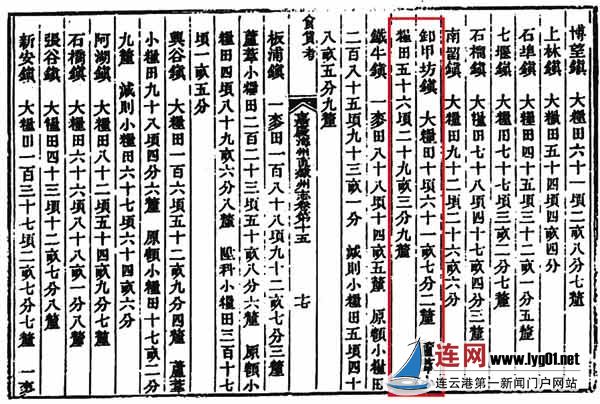 博望鎮 大糧田六十一頃二畝八分七釐
上林鎮 大糧田五十四頃四畝四分
石埠鎮 大糧田四十七頃二畝一分五釐
七堰鎮 大糧田七十七頃三畝二分七釐
石橊鎮 大糧田七十八頃四十七畝四分三釐
南留鎮 大糧田九十二頃二十六畝六分
卸甲坊鎮 大糧田十頃六十一畝七分二釐 蘆葦小
糧田五十六頃二十九畝三分九釐
鐵牛鎮 一麥田八十八頃十四畝五釐 原頓小糧田
二百八十五頃九十三畝一分 減則小糧田五頃四十
八畝五分九釐
食貨考
嘉慶海州直隸州志卷第十五 十七
板浦鎮 一麥田一百八十八頃九十二畝七分三釐
蘆葦小糧田二百二十三頃五十畝八分六釐 原頓小
糧田四頃八十九畝六分八釐 陞科小糧田三百十七
頃一畝五分
興谷鎮 大糧田一百六頃五十二畝九分四釐 蘆葦
小糧田九十八頃四分六釐 原頓小糧田十七畝二分
九釐 減則小糧田六十七頃六十四畝六分
阿湖鎮 大糧田八十二頃五十四畝九分七釐
石橋鎮 大糧田六十六頃八十八畝一分八釐
張谷鎮 大糧田四十三頃十二畝七分八釐
新安鎮 大糧田一百三十七頃二畝七分七釐 一麥
连网 www.lyg01.net
连云港第一新闻门户网站